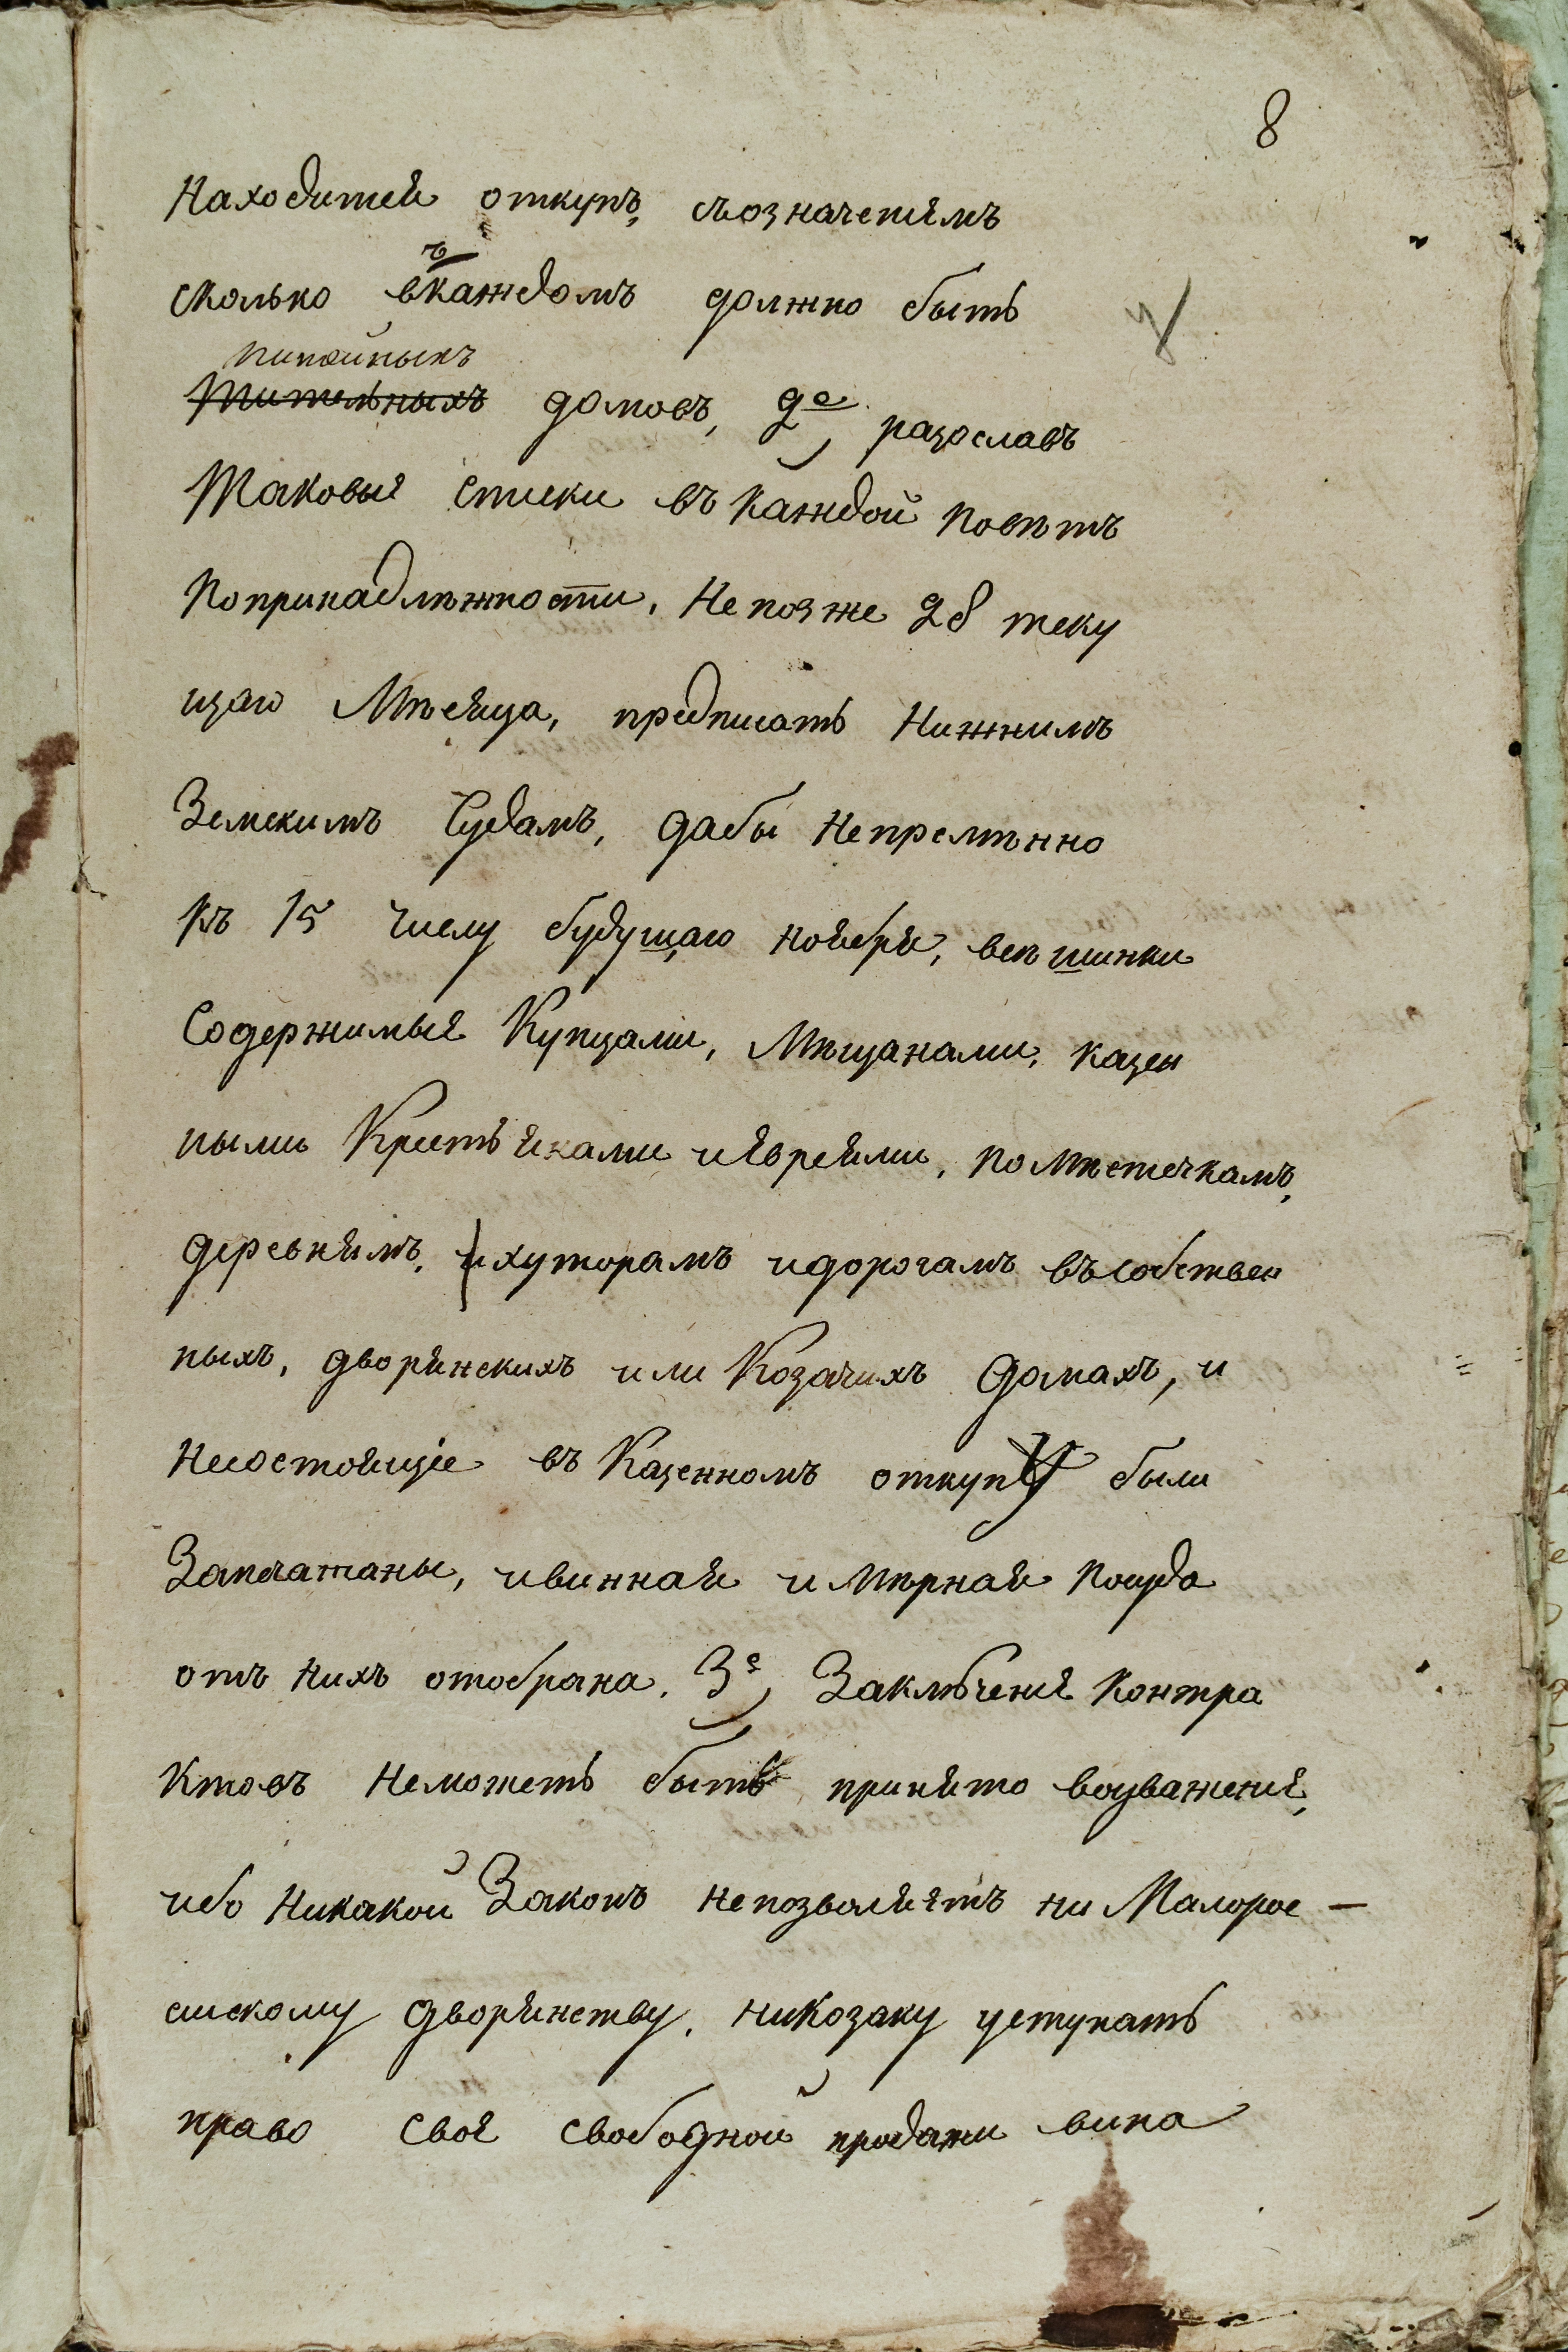 8
Находится откупъ, съозначениемъ
сколько въ каждомъ должно быть
питейныхъ
Пительныхъ домовъ, 2е, разославъ
Таковые списки въ каждой повѣтъ
Попринадлѣжности, Не позже 28 теку
щаго Мѣсяца, предписать Нижнимъ
Земскимъ Судамъ, дабы Непремѣнно
Къ 15 числу будущаго ноября, всѣ шинки
Содержимые Купцами, Мѣщанами, казен
ными Крестьянами иЕвреями, по Мѣстечкамъ,
деревнямъ, ихуторамъ идорогамъ въсобствен
ныхъ, дворянскихъ или Козачихъ домахъ, и
Несостоящіе въ Казенномъ откупу были
Запечатаны, ивинная и Мѣрная Посуда
отъ Нихъ отобрана. 3е, Заключение Контра
ктовъ Неможетъ быть принято воуважение,
ибо Никакой Законъ непозволяетъ ни Малорос–
сискому дворянству, ниКозаку уступать
право свое свободной продажи вина